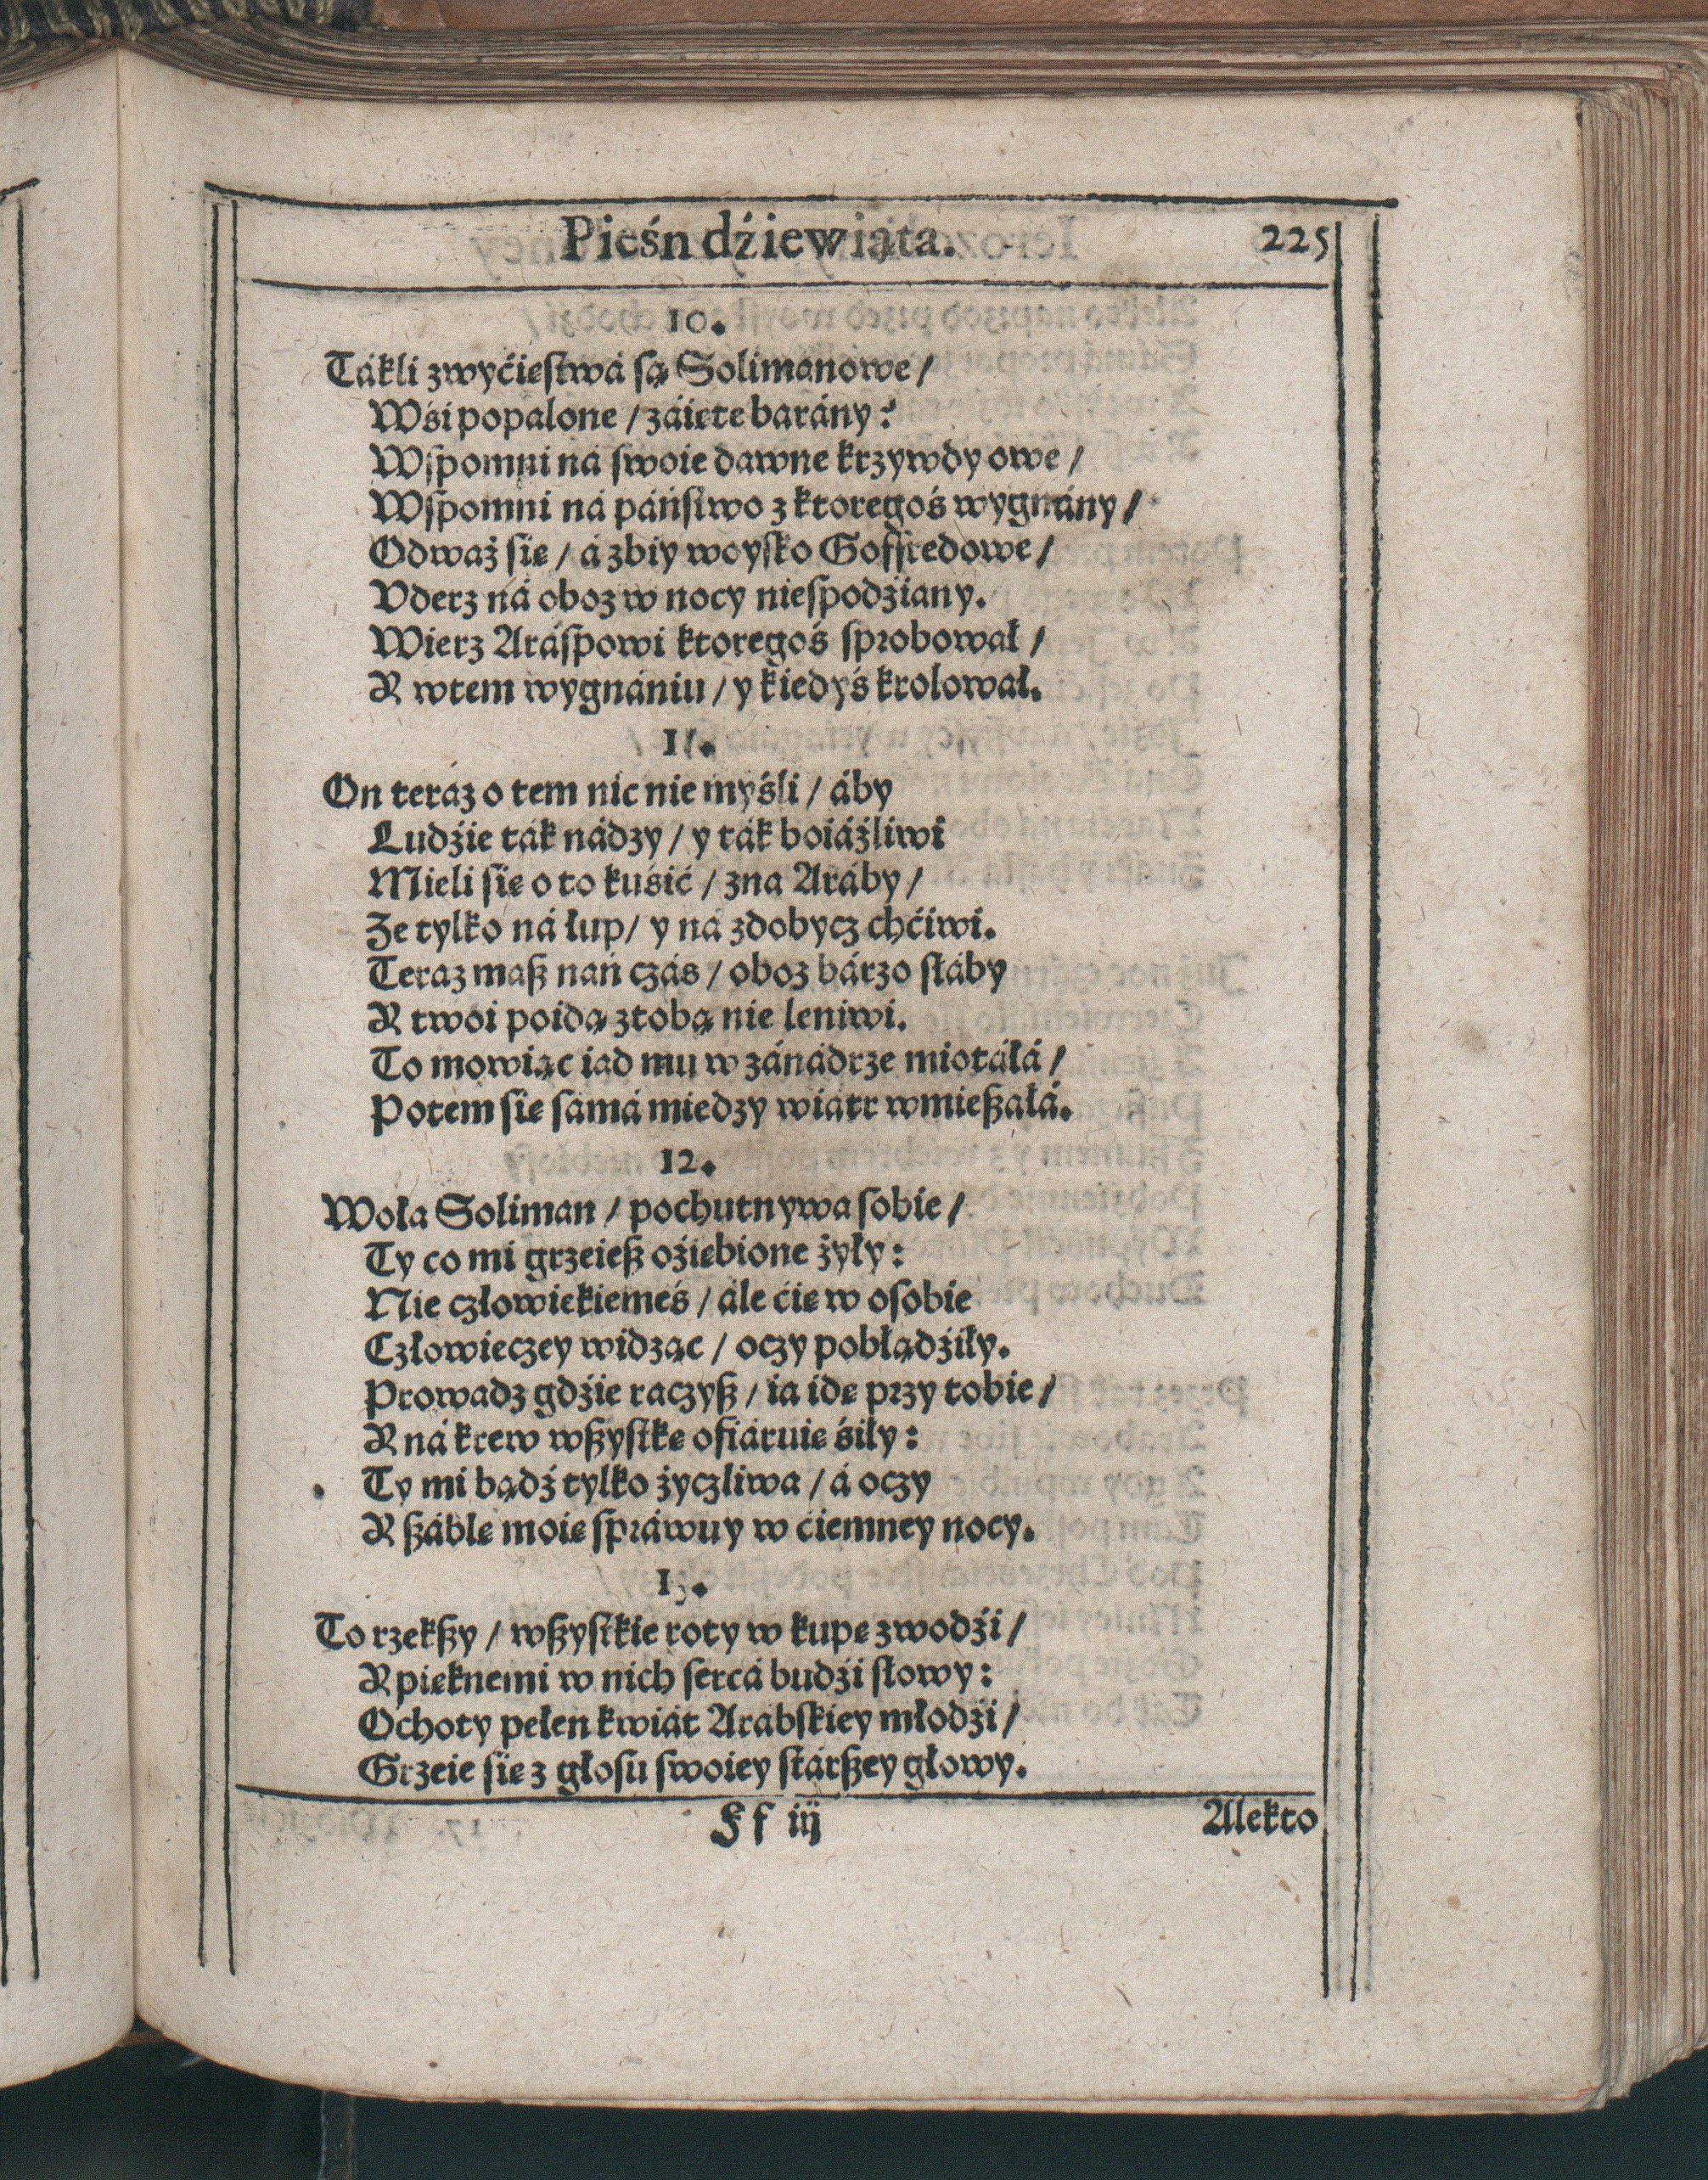 Pieśń dźiewiąta.
225
10.
Tákli zwyćięstwá są Solimanowe /
Wśi popalone / záięte barány:
Wspomni ná swoie dawne krzywdy owe /
Wspomni ná páństwo z ktoregoś wygnány /
Odważ się / á zbiy woysko Goffredowe /
Vderz ná oboz w nocy niespodźiany.
Wierz Aráspowi ktoregoś sprobował /
Y wtem wygnániu / y kiedyś krolował.
11.
On teráz o tem nic nie myśli / áby
Ludźie ták nádzy / y ták boiáźliwi
Mieli się o to kuśić / zna Aráby /
Ze tylko ná łup / y ná zdobycz chćiwi.
Teraz masz nań czás / oboz bárzo słáby
Y twoi poidą ztobą nie leniwi.
To mowiąc iad mu w zánádrze miotáłá /
Potem się samá miedzy wiátr wmieszałá.
12.
Woła Soliman / pochutnywa sobie /
Ty co mi grzeiesz oźiębione żyły:
Nie człowiekiemeś / ále ćię w osobie
Człowieczey widząc / oczy pobłądźiły.
Prowadz gdźie raczysz / ia idę przy tobie /
Y ná krew wszystkę ofiáruię śiły:
Ty mi bądź tylko życzliwa / á oczy
Y száblę moię spráwuy w ćiemney nocy.
13.
To rzekszy / wszystkie roty w kupę zwodźi /
Y pięknemi w nich sercá budźi słowy:
Ochoty pełen kwiát Arabskiey młodźi /
Grzeie się z głosu swoiey stárszey głowy.
Ff iij
Alekto